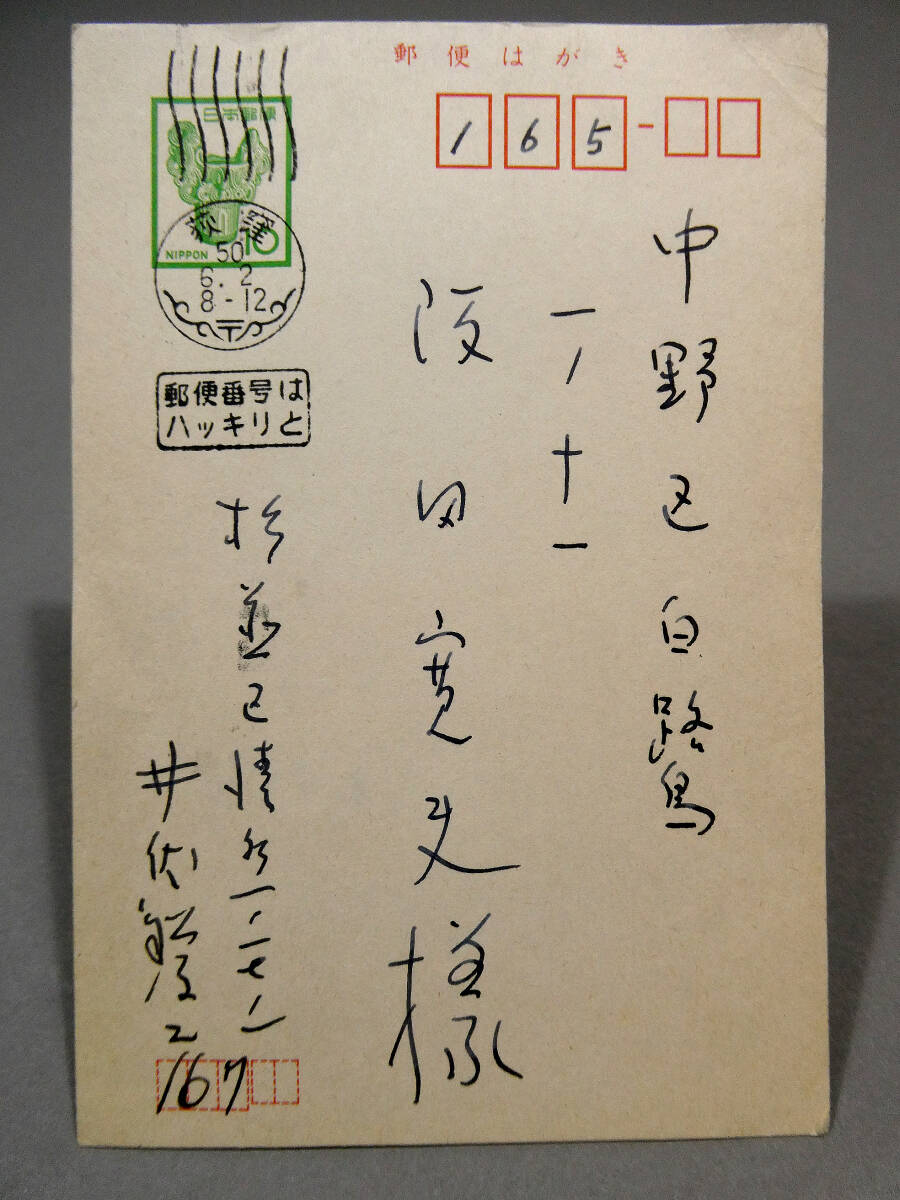 郵便はがき
165
日本郵便
NIPPON
10
荻窪
50
6.2
8-12
郵便番号は
ハッキリと
中野区白鷺
一ノ十一
阪田寛夫様
杉並区清水一ノ一七ノ一
井伏鱒二
167